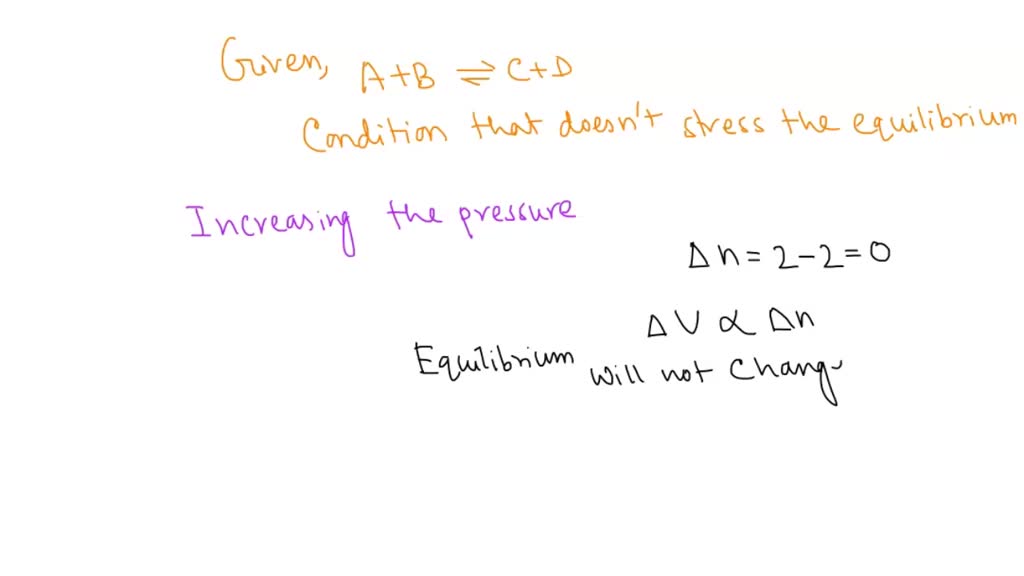 Given, A+B ⇌ C+D
Condition that doesn't stress the equilibrium
Increasing the pressure
Δn = 2-2=0
ΔV ∝ Δn
Equilibrium will not Chang